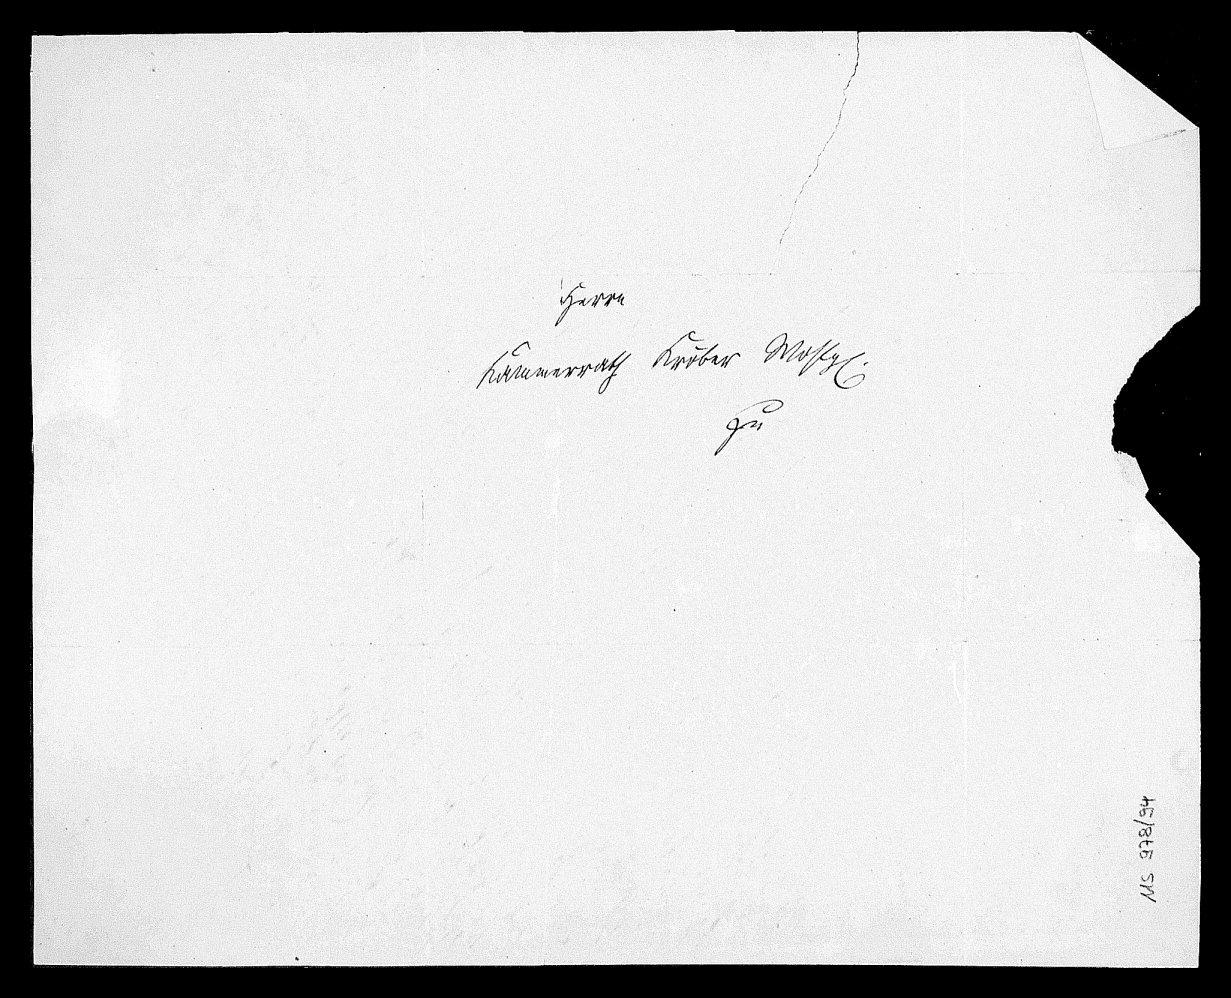 Herrn
Kammerrath Kröber Wohlg.
zu
MS 978/94